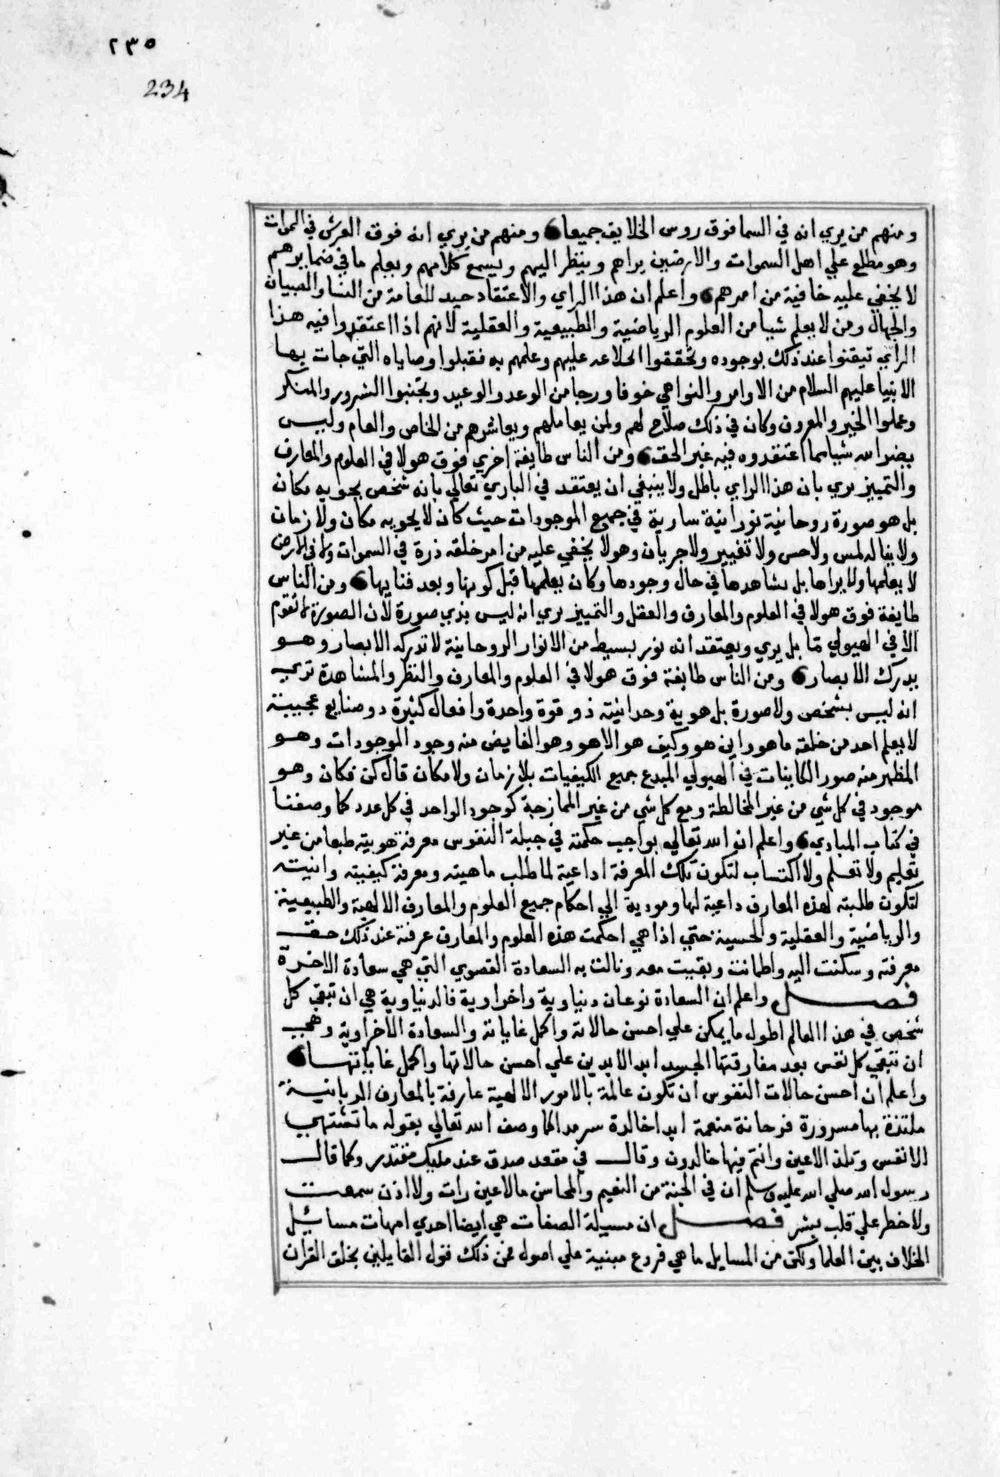 ٢٣٥
234
ومنهم من يري انه في السما فوق روس الخلايق جميعا ومنهم من يري انه فوق العرش في السموات
وهو مطلع علي اهل السموات والارضين يراهم وينظر اليهم ويسمع كلامهم ويعلم ما في ضمايرهم
لا يخفي عليه خافية من امرهم واعلم ان هذا الراي والاعتقاد جيد للعامة من النسا والصبيان
والجهال ومن لا يعلم شيا من العلوم الرياضية والطبيعية والعقلية لانهم اذا اعتقدوا فيه هذا
الراي تيقنوا عند ذلك بوجوده وتحققوا اطلاعه عليهم وعلمهم به فقبلوا وصاياه التي جات بها
الانبيا عليهم السلام من الاوامر والنواهي خوفا ورجا من الوعد والوعيد وتجنبوا الشرور والمنكر
وعملوا الخير والمعروف وكان في ذلك صلاح لهم ولمن يعاملهم ويعاشرهم من الخاص والعام وليس
يضر الله شيا مما اعتقدوه فيه غير الحق ومن الناس طايفة اخري فوق هولا في العلوم والمعارف
والتمييز يري بان هذا الراي باطل ولا ينبغي ان يعتقد في الباري تعالي بانه شخص يحويه مكان
بل هو صورة روحانية نورانية سارية في جميع الموجودات حيث كان لا يحويه مكان ولا زمان
ولا يناله لمس ولا حس ولا تغيير ولا جريان وهو لا يخفي عليه من امر خلقه ذرة في السموات ولا في الارض
لا يعلمها ولا يراها بل يشاهدها في حال وجودها وكان يعلمها قبل كونها وبعد فنايها ومن الناس
طايفة فوق هولا في العلوم والمعارف والعقل والتمييز يري انه ليس بذي صورة لان الصورة لا تقوم
الا في الهيولي بل يري ويعتقد انه نور بسيط من الانوار الروحانية لا تدركه الابصار وهو
يدرك الابصار ومن الناس طايفة فوق هولا في العلوم والمعارف والنظر والمشاهدة تري
انه ليس بشخص ولا صورة بل هوية وحدانيته ذو قوة واحدة وافعال كثيرة و صنايع عجيبة
لا يعلم احد من خلقه ما هو واين هو وكيف هو الا هو وهو الفايض منه وجود الموجودات وهو
المظهر منه صور الكاينات في الهيولي المبدع جميع الكيفيات بلا زمان ولا مكان قال كن فكان وهو
موجود في كل شي من غير المخالطة ومع كل شي من غير الممازجة كوجود الواحد في كل عدد كما وصفنا
في كتاب المبادي واعلم ان الله تعالي بواجب حكمته في جبلة النفوس معرفة هويته طبعا من غير
تعليم ولا تعلم ولا اكتساب لتكون تلك المعرفة داعية لها طلب ماهيته ومعرفة كيفيته وانيته
لتكون طلبته لهذه المعارف داعية لها ومودية الي احكام جميع العلوم والمعارف الالهية والطبيعية
والرياضية والعقلية والحسية حتي اذا هي احكمت هذه العلوم والمعارف عرفته عند ذلك حق
معرفته وسكنت اليه واطمانت وبقيت معه ونالت به السعادة القصوي التي هي سعادة الاخرة
فصل واعلم ان السعادة نوعان دنياوية واخراوية فالدنياوية هي ان تبقي كل
شخص في هذا العالم اطول ما يمكن علي احسن حالاته واكمل غاياته والسعادة الاخراوية وهي
ان تبقي كل نفس بعد مفارقتها الجسد ابد الابدين علي احسن حالاتها واكمل غاياتها
واعلم ان احسن حالات النفوس ان تكون عالمة بالامور الالهية عارفة بالمعارف الربانية
ملتذة بها مسرورة فرحانة منعمة ابدا خالدة سرمدا كما وصف الله تعالي بقوله ما تشتهي
الانفس وتلذ الاعين وانتم فيها خالدون وقال في مقعد صدق عند مليك مقتدر وكما قال
رسول الله صلي الله عليه وسلم ان في الجنة من النعيم والمحاسن ما لا عين رات ولا اذن سمعت
ولا خطر علي قلب بشر فصل ان مسيلة الصفات هي ايضا احدي امهات مسائيل
الخلاف بين العلما وكم من المسايل ما هي فروع مبنية علي اصول فمن ذلك قول القايلين بخلق القران